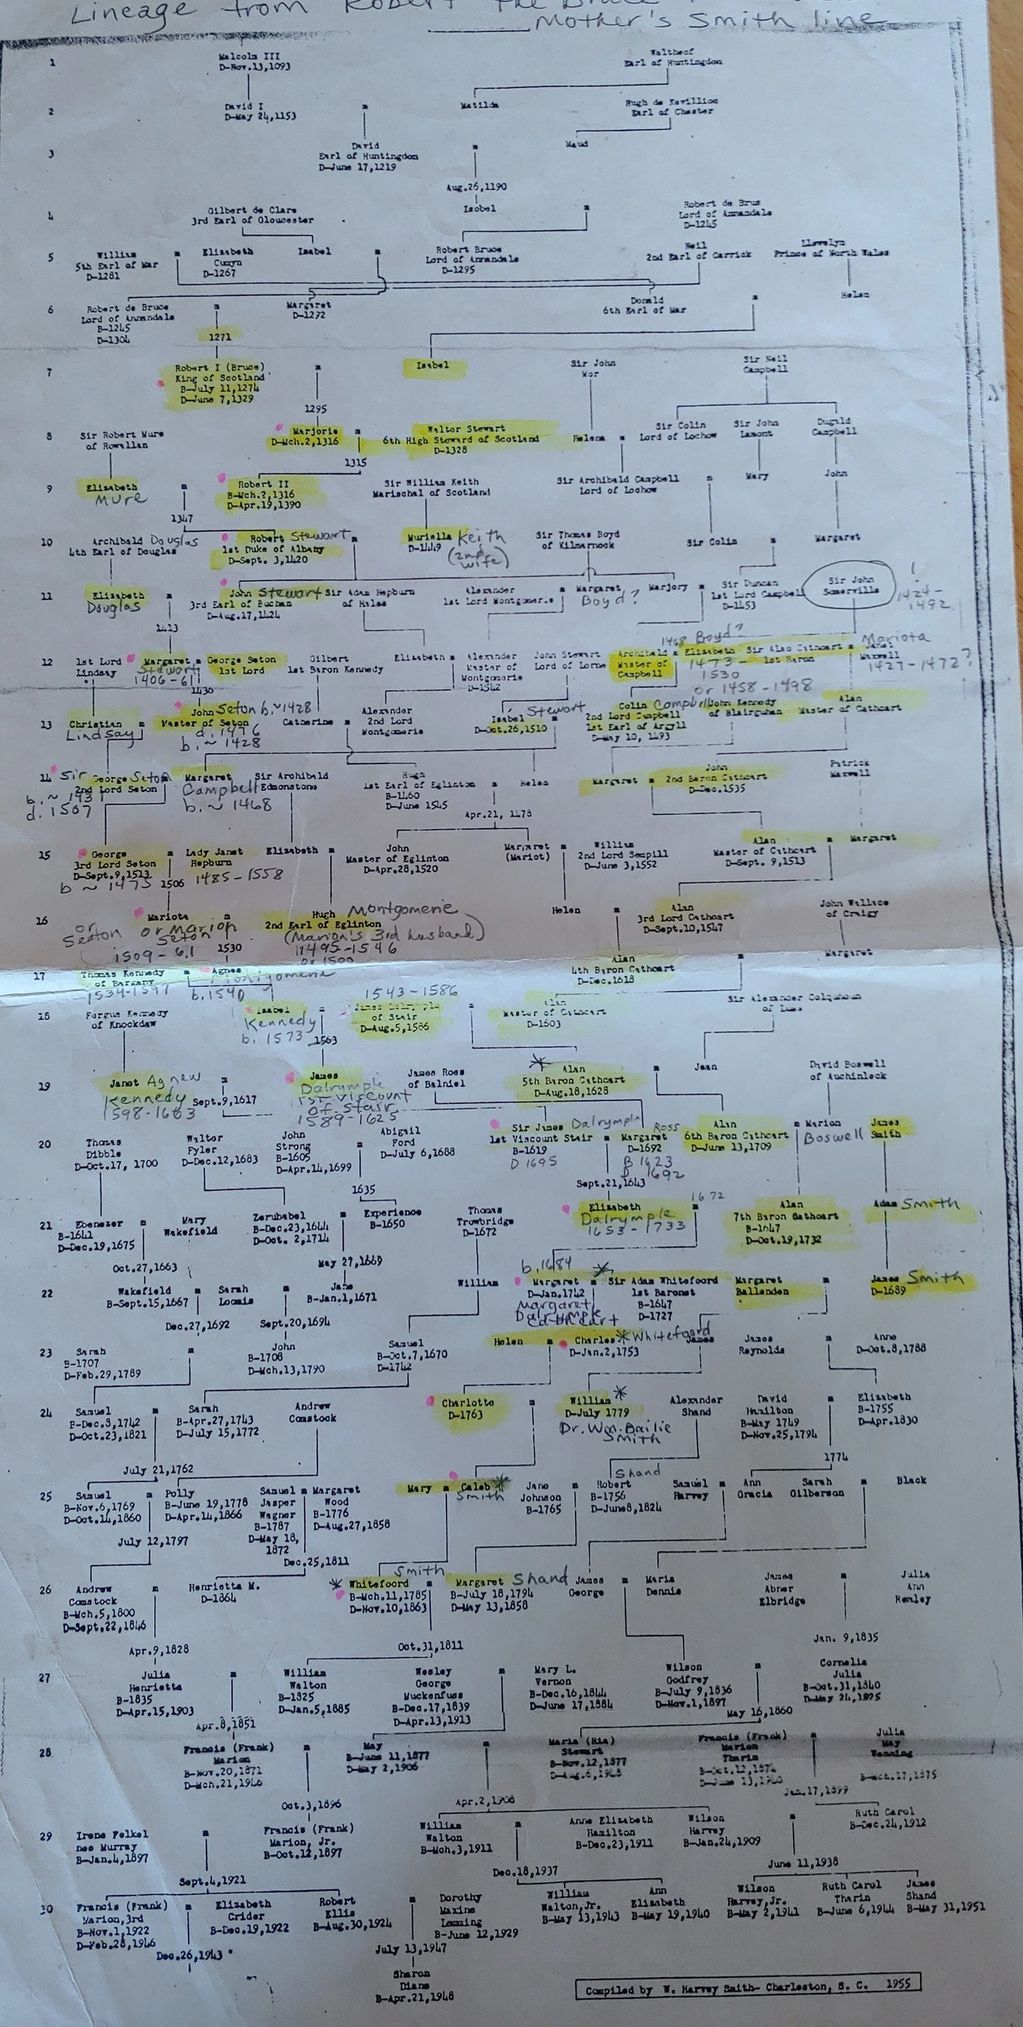 Lineage from Robert the Bruce
Mother's Smith line
1
Malcolm III
D-Nov.13,1093
Waltheof
Earl of Huntingdon
2
David I
D-May 24,1153
=
Matilda
Hugh de
Earl of Chester
3
David
Earl of Huntingdon
D-June 17,1219
=
Maud
Aug.26,1190
4
Gilbert de Clare
3rd Earl of Gloucester
Isobel
=
Robert de Brus
Lord of Annandale
D-1245
5
William
5th Earl of Mar
D-1281
=
Elizabeth
Cumyn
D-1267
Isabel
=
Robert Bruce
Lord of Annandale
D-1295
Neil
2nd Earl of Carrick
Llewelyn
Prince of North Wales
6
Robert de Bruce
Lord of Annandale
B-1245
D-1304
=
Margaret
D-1292
Donald
6th Earl of Mar
=
Helen
1271
7
Robert I (Bruce)
King of Scotland
B-July 11,1274
D-June 7,1329
=
Isabel
Sir John
Mor
Sir Neil
Campbell
1295
8
Sir Robert Mure
of Rowallan
Marjorie
D-Mch.2,1316
=
Walter Stewart
6th High Steward of Scotland
D-1328
Helena
=
Sir Colin
Lord of Lochow
Sir John
Lamont
Dugald
Campbell
1315
9
Elizabeth
Mure
=
Robert II
B-Mch.2,1316
D-Apr.19,1390
Sir William Keith
Marischal of Scotland
Sir Archibald Campbell
Lord of Lochow
=
Mary
John
1347
10
Archibald Douglas
4th Earl of Douglas
Robert Stewart
1st Duke of Albany
D-Sept. 3,1420
=
Muriella Keith
D-1449
(2nd wife)
Sir Thomas Boyd
of Kilmarnock
Sir Colin
=
Margaret
11
Elizabeth
Douglas
=
John Stewart
3rd Earl of Buchan
D-Aug.17,1424
Sir Adam Hepburn
of Hales
Alexander
1st Lord Montgomerie
=
Margaret
Boyd?
Marjory
=
Sir Duncan
1st Lord Campbell
D-1453
Sir John
Somerville
1424-
1492
1413
12
1st Lord
Lindsay
Margaret
Stewart
1406-61
=
George Seton
1st Lord
Gilbert
1st Baron Kennedy
Elizabeth
=
Alexander
Master of
Montgomerie
D-1542
John Stewart
Lord of Lorne
Archibald
Master of
Campbell
=
1468 Boyd?
Elizabeth
1473-
1530
or 1458-1498
Sir Alan Cathcart
1st Baron
=
Janet
Maxwell
Mariota
1427-1472?
1436
13
Christian
Lindsay
=
John Seton b.~1428
Master of Seton
d. 1476
b. ~ 1428
Catherine
=
Alexander
2nd Lord
Montgomerie
Isabel Stewart
D-Oct.26,1510
=
Colin Campbell
2nd Lord Campbell
1st Earl of Argyll
D-May 10, 1493
John Kennedy
of Blairquhan
Alan
Master of Cathcart
14
Sir George Seton
2nd Lord Seton
d. 1507
=
Margaret
Campbell
b. ~ 1468
Sir Archibald
Edmonstone
Hugh
1st Earl of Eglinton
B-1460
D-June 1545
=
Helen
Margaret
=
John
2nd Baron Cathcart
D-Dec.1535
Patrick
Maxwell
Apr.21, 1478
15
George
3rd Lord Seton
D-Sept.9,1513
b ~ 1475
=
1506
Lady Janet
Hepburn
1485-1558
Elizabeth
=
John
Master of Eglinton
D-Apr.28,1520
Margaret
(Mariot)
=
William
2nd Lord Sempill
D-June 3,1552
Alan
Master of Cathcart
D-Sept. 9,1513
=
Margaret
16
Mariota
or Marion
Seton
or
Seaton
1509-61
=
1530
Hugh Montgomerie
2nd Earl of Eglinton
(Marion's 3rd husband)
1495-1546
or 1500
Helen
=
Alan
3rd Lord Cathcart
D-Sept.10,1547
John Wallace
of Craigy
17
Thomas Kennedy
of Bargany
1534-1597
=
Agnes
Montgomerie
b. 1540
Alan
4th Baron Cathcart
D-Dec.1618
=
Margaret
18
Fergus Kennedy
of Knockdaw
Isabel
Kennedy
b. 1573
=
1563
1543-1586
James Dalrymple
of Stair
D-Aug.5,1586
=
Alan
Master of Cathcart
D-1603
Sir Alexander Colquhoun
of Luss
19
Janet Agnew
Kennedy
1598-1663
=
Sept.9,1617
James
Dalrymple
1st Viscount
of Stair
1589-1625
James Ross
of Balniel
Alan
5th Baron Cathcart
D-Aug.18,1628
=
Jean
David Boswell
of Auchinleck
20
Thomas
Dibble
D-Oct.17, 1700
Walter
Fyler
D-Dec.12,1683
John
Strong
B-1605
D-Apr.14,1699
=
Abigail
Ford
D-July 6,1688
Sir James Dalrymple
1st Viscount Stair
B-1619
D 1695
=
Margaret Ross
D-1692
B 1623
D 1692
Alan
6th Baron Cathcart
D-June 13,1709
=
Marion
Boswell
James
Smith
1635
Sept.21,1643
21
Ebenezer
B-1641
D-Dec.19,1675
=
Mary
Wakefield
Zerubabel
B-Dec.23,1644
D-Oct. 2,1714
=
Experience
B-1650
Thomas
Trowbridge
D-1672
Elizabeth
Dalrymple
1653-1733
=
1672
Alan
7th Baron Cathcart
B-1647
D-Oct.19,1732
Adam Smith
Oct.27,1663
May 27,1669
22
Wakefield
B-Sept.15,1667
=
Sarah
Loomis
Jane
B-Jan.1,1671
William
b.1684
Margaret
D-Jan.1742
Margaret
Dalrymple
Cathcart
=
Sir Adam Whitefoord
1st Baronet
B-1647
D-1727
Margaret
Ballenden
=
James Smith
D-1689
Dec.27,1692
Sept.20,1694
23
Sarah
B-1707
D-Feb.29,1789
=
John
B-1708
D-Mch.13,1790
Samuel
B-Oct.7,1670
D-1742
Helen
=
Charles Whitefoord
D-Jan.2,1753
James
James
Reynolds
=
Anne
D-Oct.8,1788
24
Samuel
B-Dec.8,1742
D-Oct.23,1821
=
Sarah
B-Apr.27,1743
D-July 15,1772
Andrew
Comstock
Charlotte
D-1763
=
William
D-July 1779
Dr. Wm. Bailie
Smith
Alexander
Shand
David
Hamilton
B-May 1749
D-Nov.25,1794
=
Elizabeth
B-1755
D-Apr.1830
July 21,1762
1774
25
Samuel
B-Nov.6,1769
D-Oct.14,1860
=
Polly
B-June 19,1778
D-Apr.14,1866
Samuel
Jasper
Wagner
B-1787
D-May 18,
1872
=
Margaret
Wood
B-1776
D-Aug.27,1858
Mary
=
Caleb
Smith
Jane
Johnson
B-1765
=
Robert Shand
B-1756
D-June8,1824
Samuel
Harvey
=
Ann
Gracia
Sarah
Gilberson
=
Black
July 12,1797
Dec.25,1811
26
Andrew
Comstock
B-Mch.5,1800
D-Sept.22,1846
=
Henrietta M.
D-1864
Whitefoord Smith
B-Mch.11,1785
D-Nov.10,1863
=
Margaret Shand
B-July 18,1794
D-May 13,1858
James
George
=
Maria
Dennis
James
Abner
Elbridge
=
Julia
Ann
Remley
Apr.9,1828
Oct.31,1811
Jan. 9,1835
27
Julia
Henrietta
B-1835
D-Apr.15,1903
=
William
Walton
B-1825
D-Jan.5,1885
Wesley
George
Muckenfuss
B-Dec.17,1839
D-Apr.13,1913
=
Mary L.
Vernon
B-Dec.16,1844
D-June 17,1884
Wilson
Godfrey
B-July 9,1836
D-Nov.1,1897
=
Cornelia
Julia
B-Oct.31,1840
D-May 24,1925
Apr.8,1851
May 16,1860
28
Francis (Frank)
Marion
B-Nov.20,1871
D-Mch.21,1946
=
May
B-June 11,1877
D-May 2,1906
=
Maria (Ria)
Stewart
B-Nov.12,1877
D-Aug.6,1948
Francis (Frank)
Marion
Tharin
B-Oct.12,1874
D-June 13,1940
=
Julia
May
B-Mch.17,1875
Oct.3,1896
Apr.2,1908
Jan.17,1899
29
Irene Felkel
nee Murray
B-Jan.4,1897
=
Francis (Frank)
Marion, Jr.
B-Oct.12,1897
William
Walton
B-Mch.3,1911
=
Anne Elizabeth
Hamilton
B-Dec.23,1911
Wilson
Harvey
B-Jan.24,1909
=
Ruth Carol
B-Dec.24,1912
Sept.4,1921
Dec.18,1937
June 11,1938
30
Francis (Frank)
Marion,3rd
B-Nov.1,1922
D-Feb.28,1946
=
Elizabeth
Crider
B-Dec.19,1922
Robert
Ellis
B-Aug.30,1924
=
Dorothy
Maxine
Lemming
B-June 12,1929
William
Walton,Jr.
B-May 13,1943
Ann
Elizabeth
B-May 19,1940
Wilson
Harvey,Jr.
B-May 2,1941
Ruth Carol
Tharin
B-June 6,1944
James
Shand
B-May 31,1951
Dec.26,1943
July 13,1947
Sharon
Diane
B-Apr.21,1948
Compiled by W. Harvey Smith- Charleston, S. C. 1955